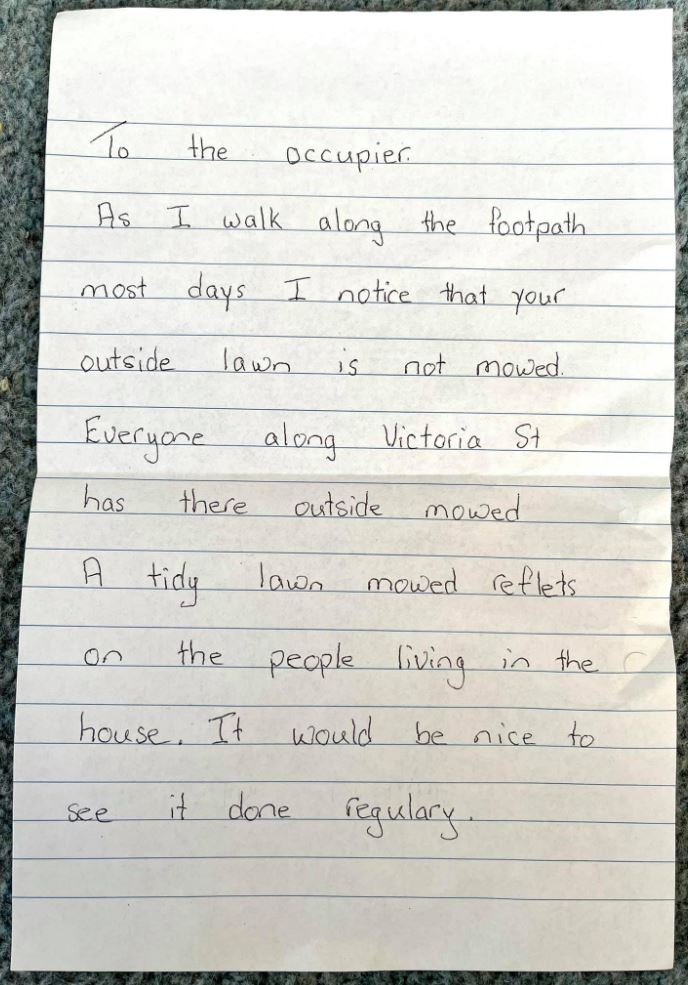 To the occupier.
As I walk along the footpath
most days I notice that your
outside lawn is not mowed.
Everyone along Victoria St
has there outside mowed
A tidy lawn mowed reflets
on the people living in the
house. It would be nice to
see it done regulary.